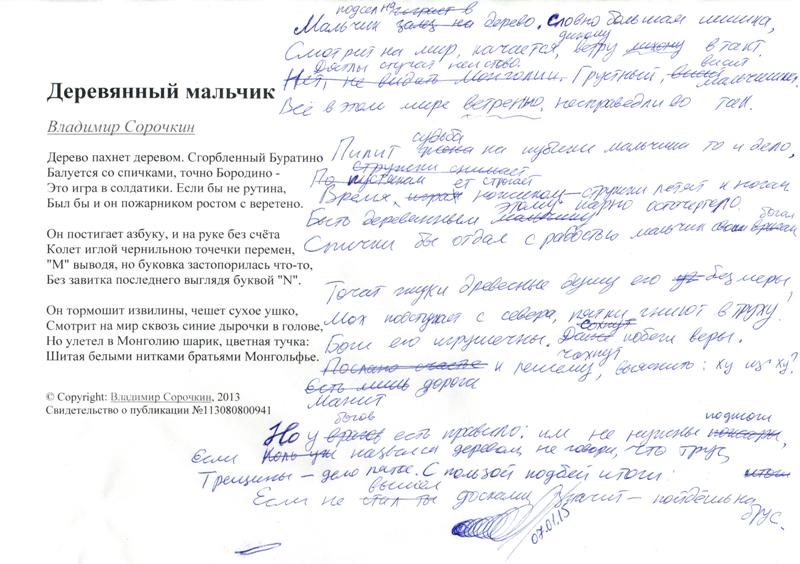 Деревянный мальчик
Владимир Сорочкин
Дерево пахнет деревом. Сгорбленный Буратино
Балуется со спичками, точно Бородино -
Это игра в солдатики. Если бы не рутина,
Был бы и он пожарником ростом с веретено.
Он постигает азбуку, и на руке без счёта
Колет иглой чернильною точечки перемен,
"М" выводя, но буковка застопорилась что-то,
Без завитка последнего выглядя буквой "N".
Он тормошит извилины, чешет сухое ушко,
Смотрит на мир сквозь синие дырочки в голове,
Но улетел в Монголию шарик, цветная тучка:
Шитая белыми нитками братьями Монгольфье.
© Copyright: Владимир Сорочкин, 2013
Свидетельство о публикации №113080800941
подсел на
Мальчик залез на дерево, словно большая шишка,
дикому
Смотрит на мир, качается, ветру в такт.
Дятлы стучат неистово. висит
Нет, не видать Монголии. Грустный, мальчишка.
Всё в этом мире ветренно, несправедливо так.
судьба
Пилит на кубики мальчика то и дело,
стружки снимает
По пустякам ет строгает
Время, играя ножиком стружки летят к ногам
этому
Быть деревянным мальчику парню осточертело.
богам
Спички бы отдал с радостью мальчик своим врагам
Точат жуки древесные душу его без меры,
Мох наступает с севера, пятки гниют в труху.
сохнут
Боги его игрушечны. Даже побеги веры.
чахнут
Послано счастье к лешему, выяснить: ху из ху?
Есть лишь дорога
Манит
богов подмоги
Но у врагов есть правило: им не нужны
Если Коль уж назвался деревом, не говори, что трус,
Трещины – дело пятое. С пользой подбей итоги: итоги
вышел
Если не стал ты досками, значит – пойдёшь на
брус.
07.01.15